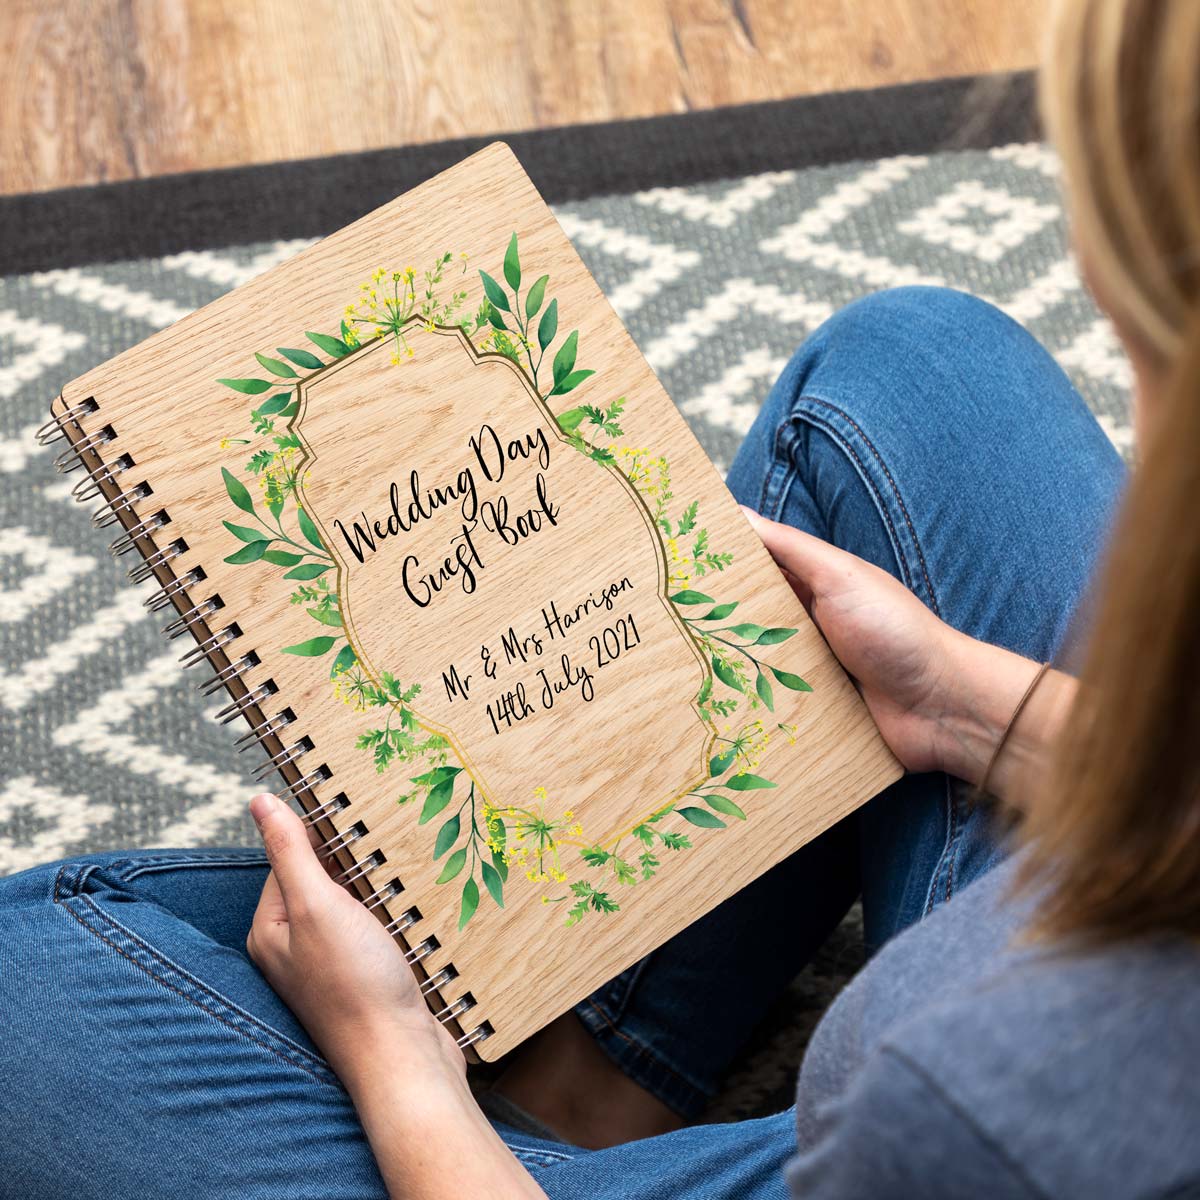 Wedding Day
Guest Book
Mr & Mrs Harrison
14th July 2021